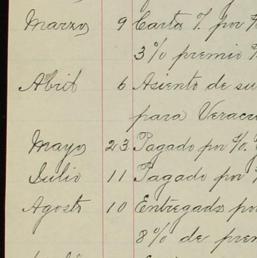 Marzo 9 Carta por
3% premio
Abril 6 Asiento de su
para Veracru
Mayo 23 Pagado por
Julio 11 Pagado por
Agosto 10 Entregado por
8% de prem